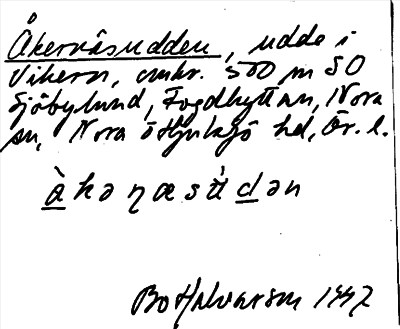 Åkernäsudden, udde i
Vikern, omkr. 500 m SO
Sjöbylund, Fogdhyttan, Nora
sn, Nora o Hjulsjö hd, Ör. l.
Bo Halvarson 1992